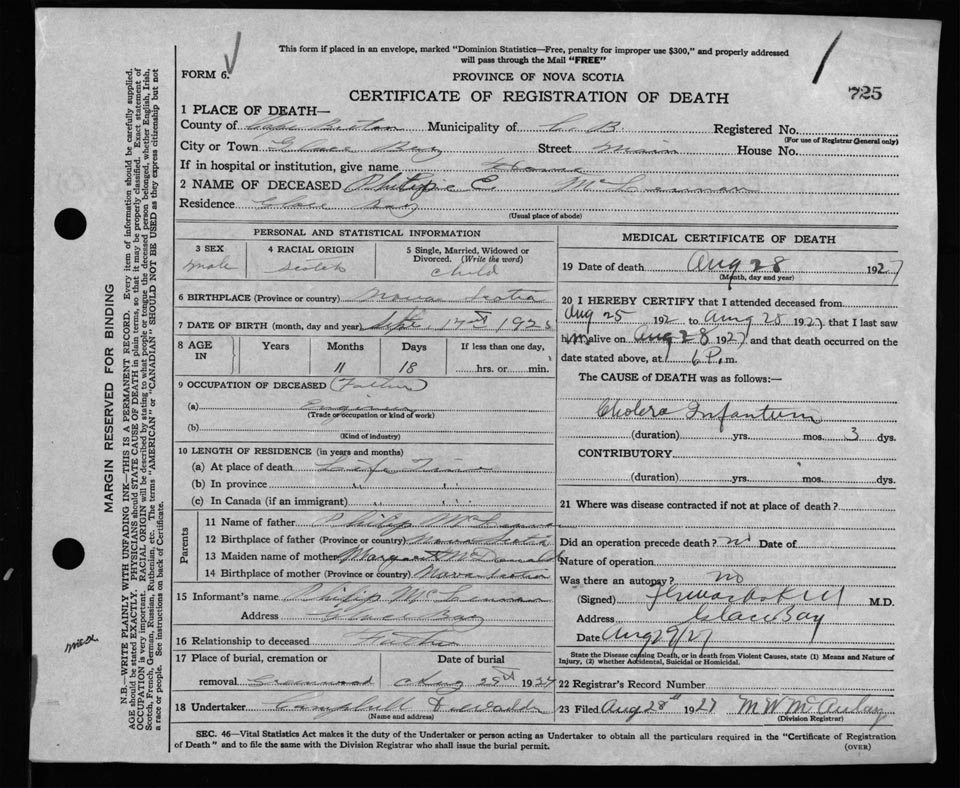 This form if placed in an envelope, marked "Dominion Statistics—Free, penalty for improper use $300," and properly addressed
will pass through the Mail "FREE"
FORM 6.
PROVINCE OF NOVA SCOTIA
CERTIFICATE OF REGISTRATION OF DEATH
725
1 PLACE OF DEATH—
County of Cape Breton Municipality of C. B. Registered No.
(For use of Registrar General only)
City or Town Glace Bay Street Main House No.
If in hospital or institution, give name Home
2 NAME OF DECEASED E. McLennan
Residence Glace Bay
(Usual place of abode)
PERSONAL AND STATISTICAL INFORMATION
3 SEX
male
4 RACIAL ORIGIN
Scotch
5 Single, Married, Widowed or
Divorced. (Write the word)
child
6 BIRTHPLACE (Province or country) Nova Scotia
7 DATE OF BIRTH (month, day and year) Sept. 192
8 AGE
IN
Years
Months
11
Days
18
If less than one day,
hrs. or min.
9 OCCUPATION OF DECEASED (Father)
(a) Engineer
(Trade or occupation or kind of work)
(b)
(Kind of industry)
10 LENGTH OF RESIDENCE (in years and months)
(a) At place of death Life Time
(b) In province " "
(c) In Canada (if an immigrant) " "
Parents
11 Name of father Philip McLennan
12 Birthplace of father (Province or country) Nova Scotia
13 Maiden name of mother Margaret McDonald
14 Birthplace of mother (Province or country) Nova Scotia
15 Informant's name Philip McLennan
Address Glace Bay
16 Relationship to deceased Father
17 Place of burial, cremation or
removal Greenwood
Date of burial
Aug 192
18 Undertaker Campbell
(Name and address)
MEDICAL CERTIFICATE OF DEATH
19 Date of death Aug 28 1927
(Month, day and year)
20 I HEREBY CERTIFY that I attended deceased from
Aug 25 192 to Aug 28 1927, that I last saw
him alive on Aug 28 1927 and that death occurred on the
date stated above, at 6 P. m.
The CAUSE OF DEATH was as follows:—
Cholera Infantum
(duration) yrs. mos. 3 dys.
CONTRIBUTORY
(duration) yrs. mos. dys.
21 Where was disease contracted if not at place of death?
Did an operation precede death? no Date of
Nature of operation
Was there an autopsy? no
(Signed) M.D.
Address Glace Bay
Date Aug 29/27
State the Disease causing Death, or in death from Violent Causes, state (1) Means and Nature of
Injury, (2) whether Accidental, Suicidal or Homicidal.
22 Registrar's Record Number
23 Filed Aug 28" 1927
(Division Registrar)
SEC. 46—Vital Statistics Act makes it the duty of the Undertaker or person acting as Undertaker to obtain all the particulars required in the "Certificate of Registration
of Death" and to file the same with the Division Registrar who shall issue the burial permit.
(OVER)
MARGIN RESERVED FOR BINDING
N.B.—WRITE PLAINLY WITH UNFADING INK—THIS IS A PERMANENT RECORD. Every item of information should be carefully supplied.
AGE should be stated EXACTLY. PHYSICIANS should STATE CAUSE OF DEATH in plain terms, so that it may be properly classified. Exact statement of
OCCUPATION is very important. RACIAL ORIGIN will be described by stating to what people or tongue the deceased person belonged, whether English, Irish,
Scotch, French, German, Russian, Ruthenian, etc. The terms "AMERICAN" or "CANADIAN" SHOULD NOT BE USED as they express citizenship but not
a race or people. See instructions on back of Certificate.